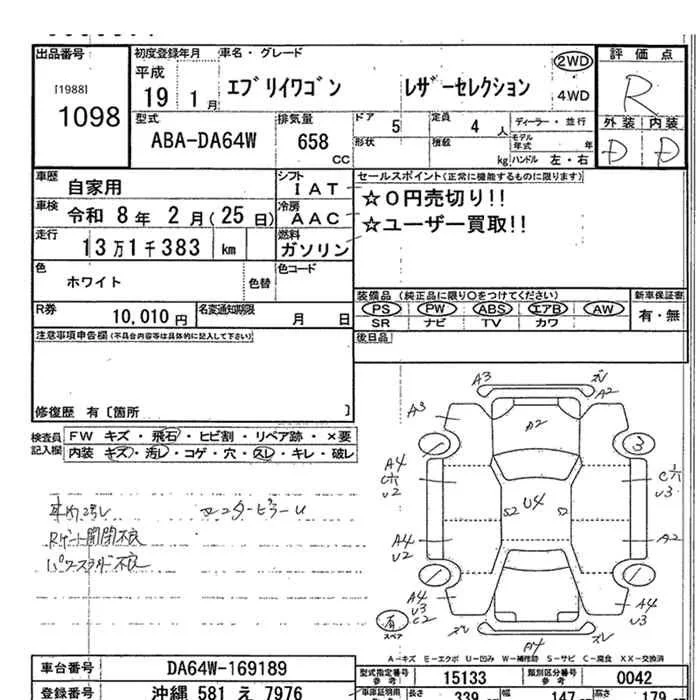 出品番号 初度登録年月 車名・グレード 評価点
[1988] 平成 エブリイワゴン レザーセレクション 2WD R
1098 19 1月 4WD
型式 排気量 ドア 5 定員 4人 ディーラー・並行 外装 内装
ABA-DA64W 658 CC 形状 積載 kg モデル年式 年 D D
ハンドル 左・右
車歴 自家用 シフト IAT セールスポイント(正常に機能するものに限ります)
車検 令和 8年 2月(25日) 冷房 AAC ☆0円売切り!!
走行 13万1千383 km 燃料 ガソリン ☆ユーザー買取!!
色 ホワイト 色替 色コード
装備品(純正品に限り○をつけてください) 新車保証書
R券 10,010円 名変通知期限 月 日 PS PW ABS エアB AW 有・無
SR ナビ TV カワ
注意事項申告欄(不具合内容等は具体的に記入して下さい) 後日品
修復歴 有〔箇所 〕
検査員記入欄 FW キズ・飛石・ヒビ割・リペア跡・×要
内装 キズ・汚レ・コゲ・穴・スレ・キレ・破レ
センターピラーU
Rゲート開閉不良
パワースライド不良
A3 ズレ A2
A3 A2
3
A4 U2 U4 U3
A4 U2 A2
A4 U3 C2 A4 U3
有 スペア ズレ A4 ズレ
A−キズ E−エクボ U−凹み W−補修跡 S−サビ C−腐食 XX−交換済
車台番号 DA64W-169189 型式指定番号 参考 15133 類別区分番号 参考 0042
登録番号 沖縄 581 え 7976 長さ 339 幅 147 高さ 179